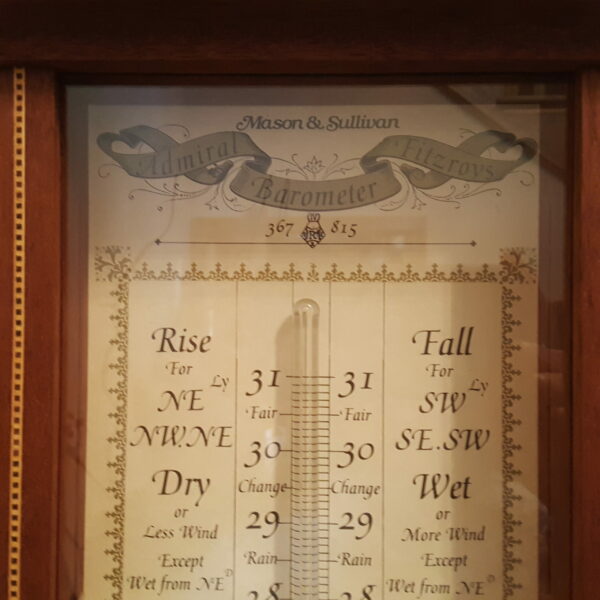 Mason & Sullivan
Admiral Fitzroys
Barometer
367 815
Rise
For
NE Ly
NW.NE
Dry
or
Less Wind
Except
Wet from NE D
31 31
Fair Fair
30 30
Change Change
29 29
Rain Rain
28 28
Fall
For
SW Ly
SE.SW
Wet
or
More Wind
Except
Wet from NE D